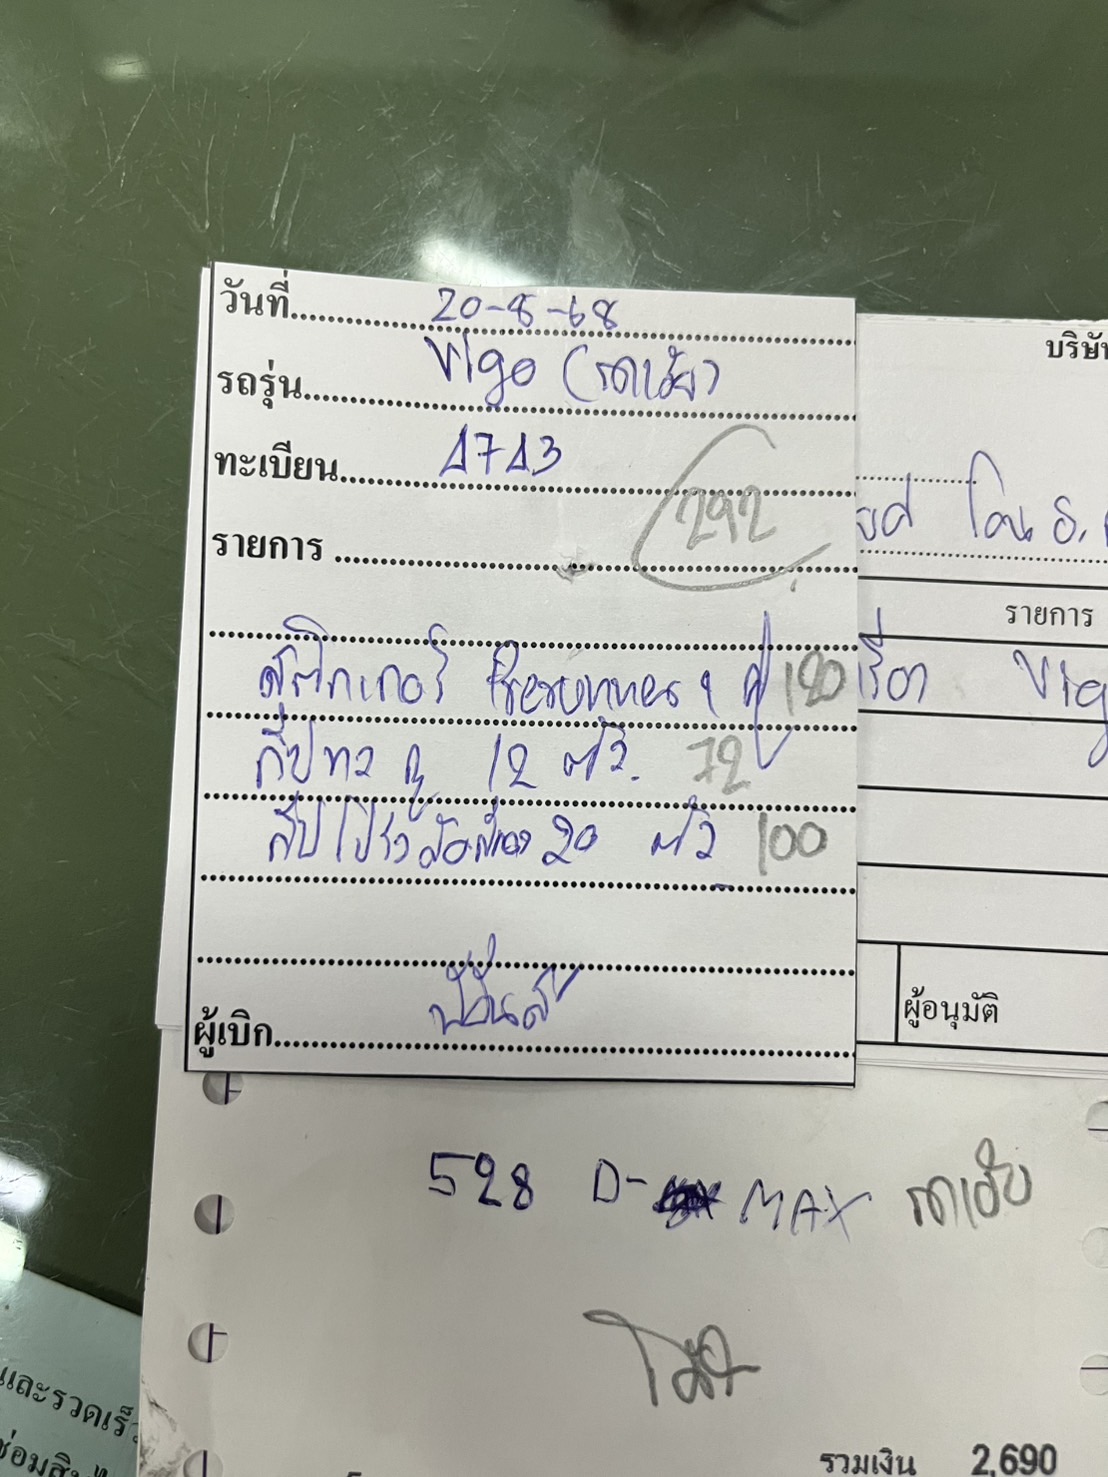 วันที่ 20-8-68
รถรุ่น Vigo (รถเฮีย)
ทะเบียน 4743
292
รายการ
สติกเกอร์ Prerunner 1 คู่ 120
กิ๊ปทวิ 12 ตัว. 72
กิ๊ปโป่งล้อ 20 ตัว 100
ผู้เบิก
บริษัท
โดน อ.
รายการ
Vig
ผู้อนุมัติ
528 D-MAX รถเฮีย
และรวดเร็ว
รวมเงิน 2,690